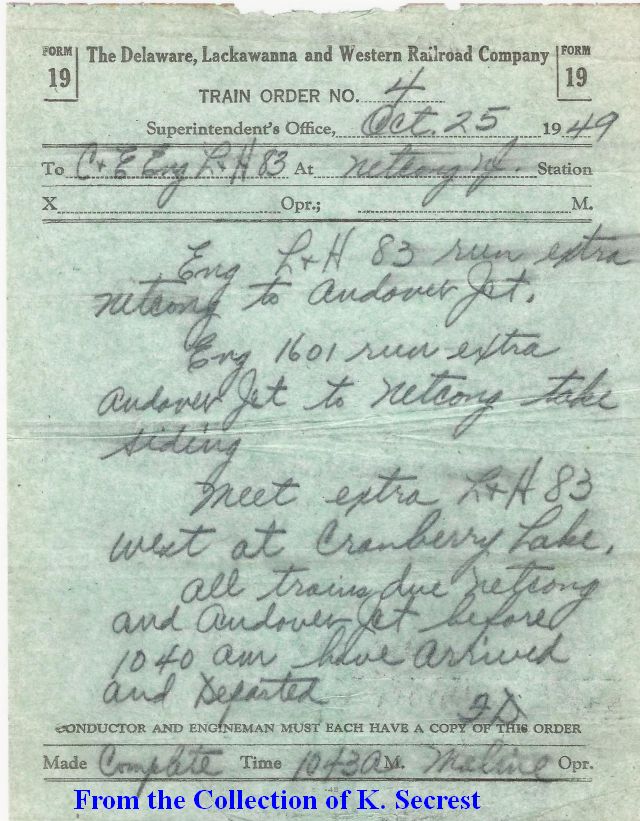 FORM 19
The Delaware, Lackawanna and Western Railroad Company
FORM 19
TRAIN ORDER NO. 4
Superintendent's Office, Oct. 25 1949
To C+E Eng L+H 83 At Netcong NJ. Station
X Opr.; M.
Eng L+H 83 run extra
Netcong to Andover Jct.
Eng 1601 run extra
Andover Jct to Netcong take
siding
Meet extra L+H 83
west at Cranberry Lake.
all trains due Netcong
and Andover Jct before
1040 am have arrived
and Departed
CONDUCTOR AND ENGINEMAN MUST EACH HAVE A COPY OF THIS ORDER
Made Complete Time 1043 A M. Opr.
From the Collection of K. Secrest